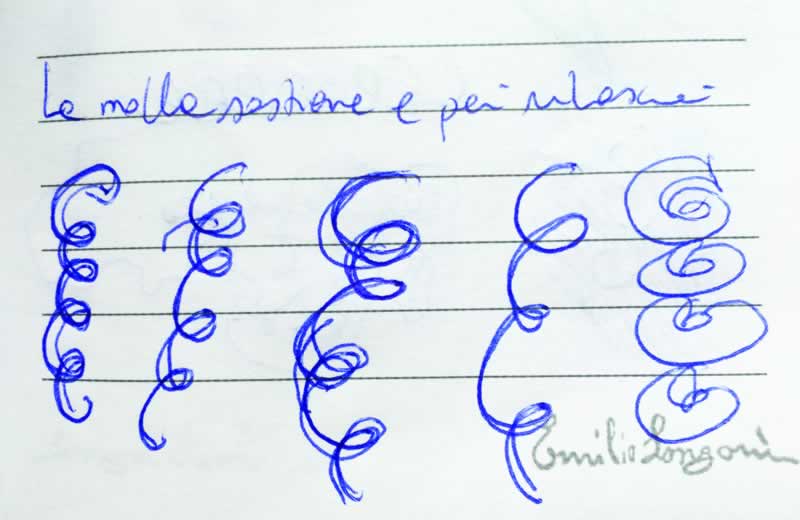 La molla sostiene e poi rilascia
Emilio Longoni